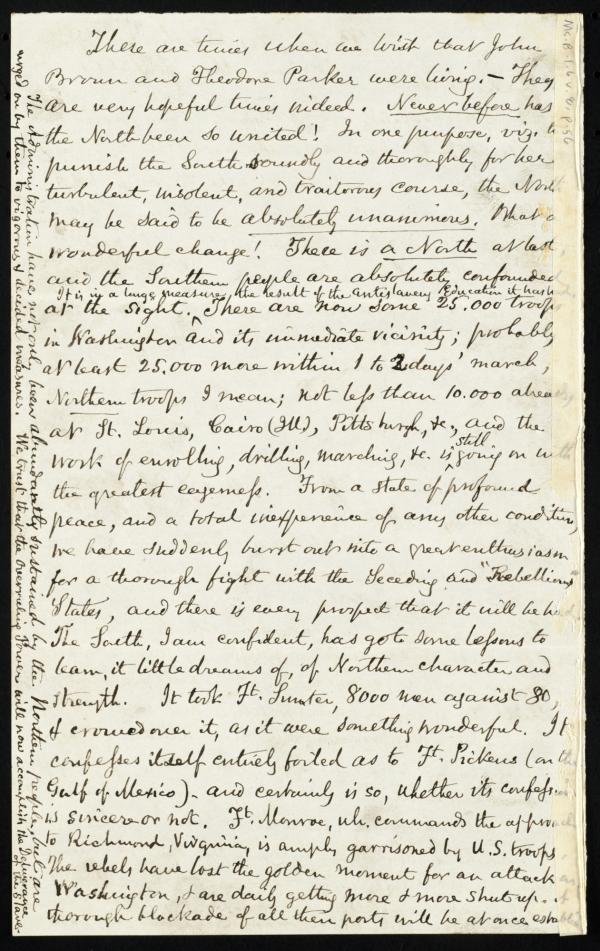 There are times when we wish that John
Brown and Theodore Parker were living. – They
are very hopeful times indeed. Never before has
the North been so united! In one purpose, viz. to
punish the South soundly and thoroughly for her
turbulent, insolent, and traitorous course, the North
may be said to be absolutely unanimous. What a
wonderful change! There is a North at last,
and the Southern people are absolutely confounded
It is in a large measure, the result of the Antislavery Education it has had.
at the sight. ^ There are now some 25.000 troops
in Washington and its immediate vicinity; probably
at least 25.000 more within 1 to 2 days' march,
Northern troops I mean; not less than 10.000 already
at St. Louis, Cairo (Ill), Pittsburgh, &c., and the
still
work of enrolling, drilling, marching, &c. is ^ going on with
the greatest eagerness. From a state of profound
peace, and a total inexperience of any other condition,
we have suddenly burst out into a great enthusiasm
for a thorough fight with the Seceding and "Rebellious"
States, and there is every prospect that it will be had.
The South, I am confident, has got some lessons to
learn, it little dreams of, of Northern character and
strength. It took Ft. Sumter, 8000 men against 80,
& crowed over it, as it were something wonderful. It
confesses itself entirely foiled as to Ft. Pickens (on the
Gulf of Mexico) – and certainly is so, whether its confession
is sincere or not. Ft. Monroe, wh. commands the approach
to Richmond, Virginia, is amply garrisoned by U.S. troops.
The rebels have lost the golden moment for an attack on
Washington, & are daily getting more & more shut up. A
thorough blockade of all their ports will be at once established
The Administration have not only been abundantly sustained by the Northern people, but are
urged on by them to vigorous & decided measures. We trust that the Overruling Power will now accomplish the Deliverance
of the Slave.
Ms.B.1.6 v.8, p.56